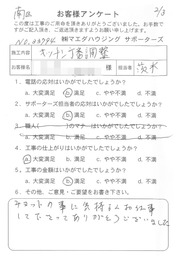 南區
2/3
お客様アンケート
この度は工事のご用命を頂きありがとうございました。お手数で
すがご記入頂き、ご返送頂きますようお願い申し上げます。
㈱マエダハウジング サポーターズ
工事内容 キッチン扉調整
お客様名 様 担当 茨木
1. 電話の応対はいかがでしたでしょうか?
a. 大変満足 b. 満足 c. 普通 d. やや不満 e. 不満
2. サポーターズ担当者の応対はいかがでしたでしょうか?
a. 大変満足 b. 満足 c. 普通 d. やや不満 e. 不満
3. 職人( )のマナーはいかがでしたでしょうか?
a. 大変満足 b. 満足 c. 普通 d. やや不満 e. 不満
4. 工事の仕上がりはいかがでしたでしょうか?
a. 大変満足 b. 満足 c. 普通 d. やや不満 e. 不満
5. 工事の金額はいかがでしたでしょうか?
a. 大変満足 b. 満足 c. 普通 d. やや不満 e. 不満
6. その他、ご意見・ご要望をお書き下さい。
チョットの事に気持よくお仕事
して下さってありがとうございました